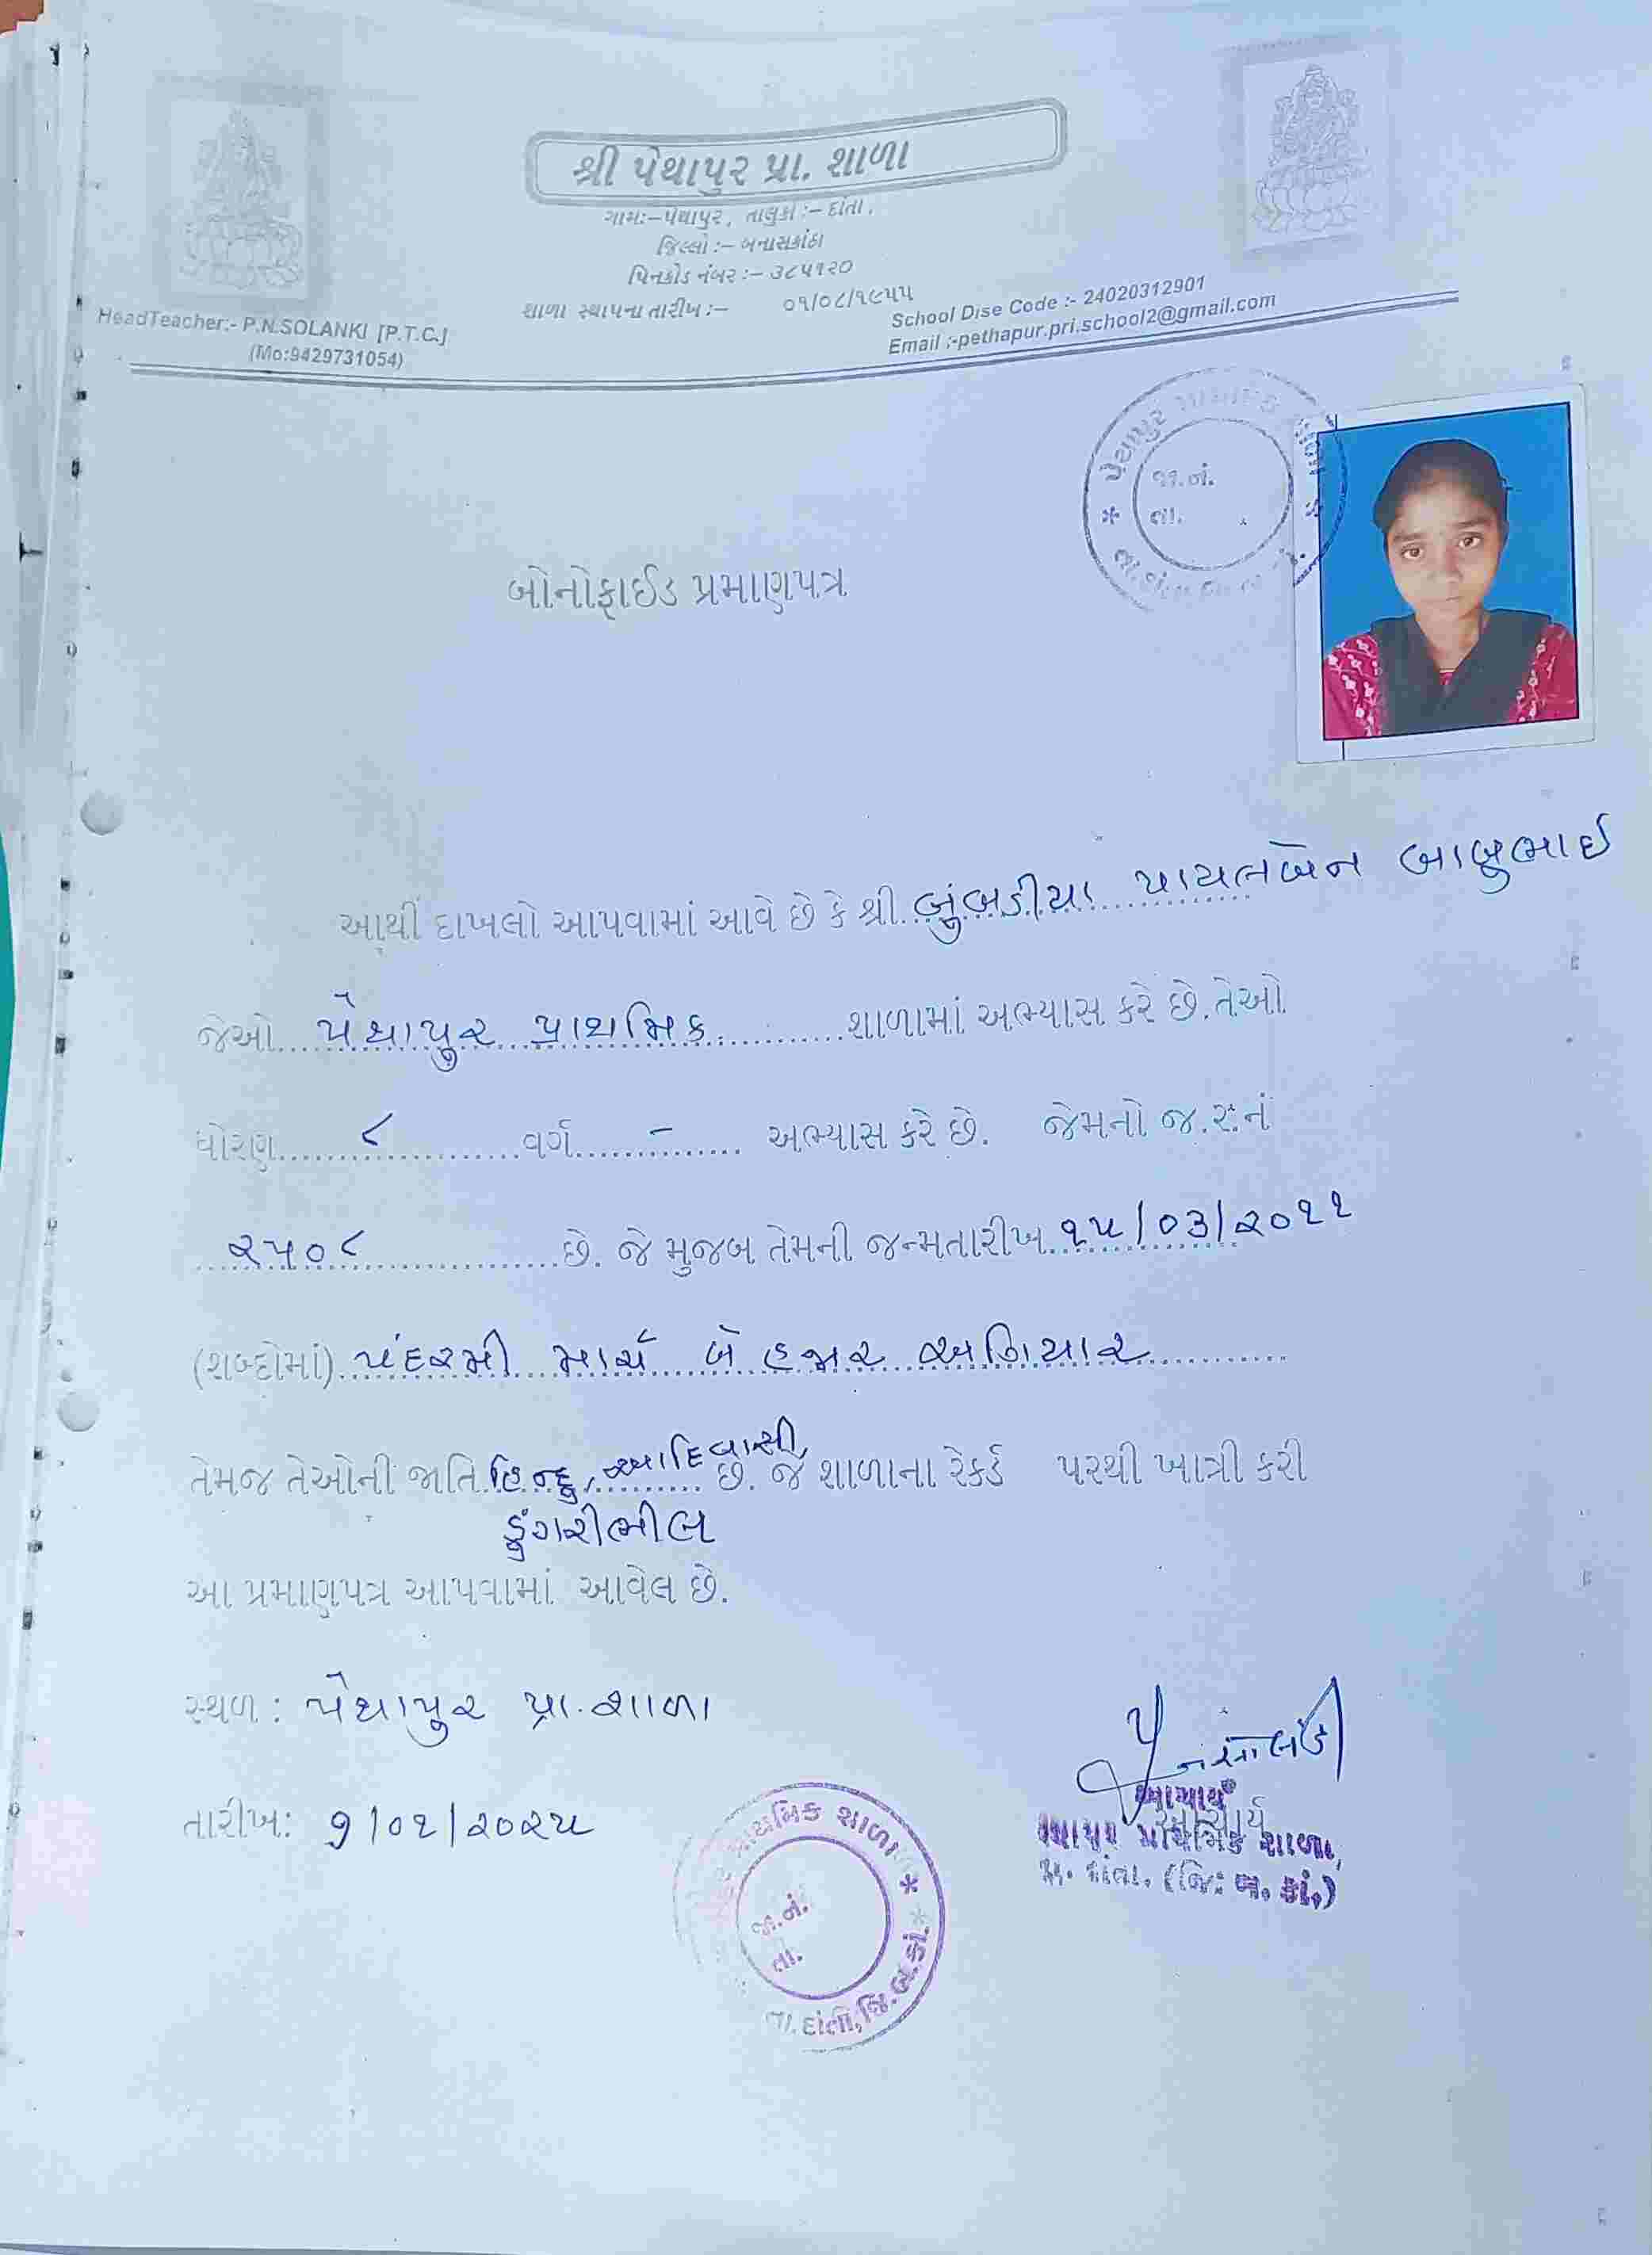 શ્રી પેથાપુર પ્રા. શાળા
ગામઃ-પેથાપુર, તાલુકો :- દાંતા,
જિલ્લો :- બનાસકાંઠા
પિનકોડ નંબર :- ૩૮૫૧૨૦
શાળા સ્થાપના તારીખ :- ૦૧/૦૮/૧૯૫૫
HeadTeacher:- P.N.SOLANKI [P.T.C.]
(Mo:9429731054)
School Dise Code :- 24020312901
Email :-pethapur.pri.school2@gmail.com
પેથાપુર
જા.નં.
તા.
બોનોફાઈડ પ્રમાણપત્ર
આથી દાખલો આપવામાં આવે છે કે શ્રી..બુંબડીયા પાયલબેન બાબુભાઈ
જેઓ....પેથાપુર પ્રાથમિક..........શાળામાં અભ્યાસ કરે છે.તેઓ
ધોરણ.......૮...........વર્ગ.......-....... અભ્યાસ કરે છે. જેમનો જ.ર.નં
...૨૫૦૮...............છે. જે મુજબ તેમની જન્મતારીખ..૧૫/૦૩/૨૦૧૧
(શબ્દોમાં)..પંદરમી માર્ચ બે હજાર અગિયાર............
તેમજ તેઓની જાતિ..હિન્દુ, આદિવાસી, છે. જે શાળાના રેકર્ડ પરથી ખાત્રી કરી
ડુંગરીભીલ
આ પ્રમાણપત્ર આપવામાં આવેલ છે.
સ્થળ : પેથાપુર પ્રા. શાળા
તારીખ: ૭/૦૧/૨૦૨૫
આચાર્ય
આચાર્ય
પ્રાથમિક શાળા,
દાંતા. (જિ: બ. કાં.)
પ્રાથમિક શાળા
જા.નં.
તા.
તા.દાંતા,જિ.બ.કાં.